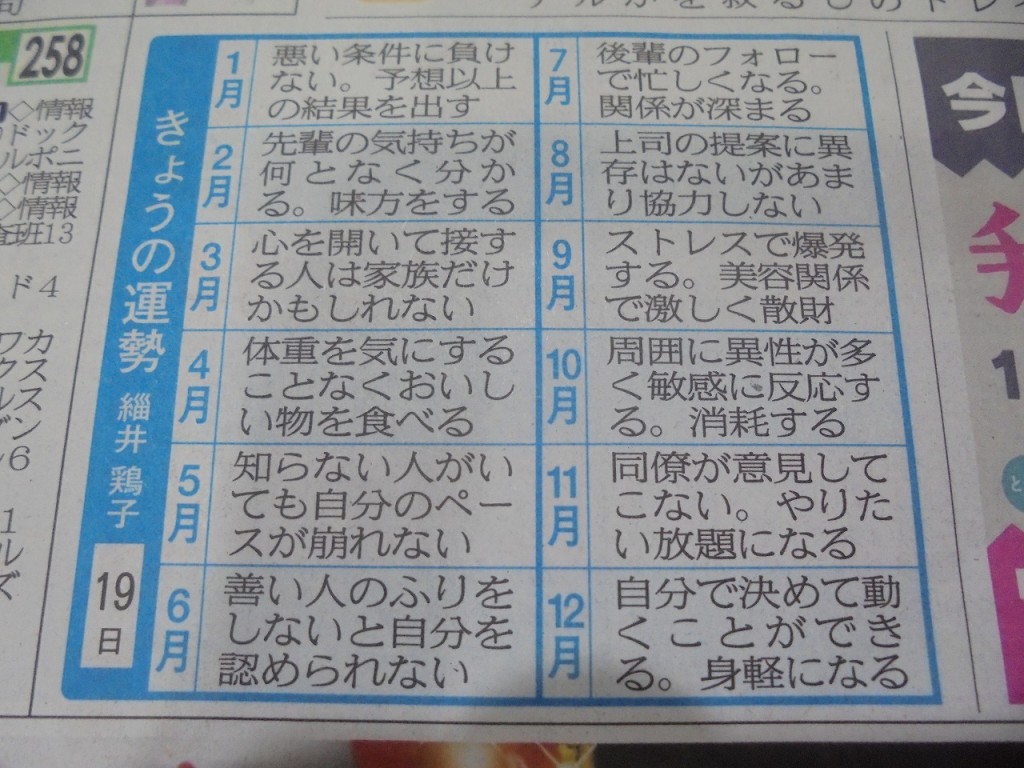 258
◇情報
ドック
ルポニ
◇情報
◇情報
班13
ド4
きょうの運勢
緇井 鶏子
19日
1月
悪い条件に負け
ない。予想以上
の結果を出す
2月
先輩の気持ちが
何となく分か
る。味方をする
3月
心を開いて接す
る人は家族だけ
かもしれない
4月
体重を気にする
ことなくおいし
い物を食べる
5月
知らない人がい
ても自分のペー
スが崩れない
6月
善い人のふりを
しないと自分を
認められない
7月
後輩のフォロー
で忙しくなる。
関係が深まる
8月
上司の提案に異
存はないがあま
り協力しない
9月
ストレスで爆発
する。美容関係
で激しく散財
10月
周囲に異性が多
く敏感に反応す
る。消耗する
11月
同僚が意見して
こない。やりた
い放題になる
12月
自分で決めて動
くことができ
る。身軽になる
今